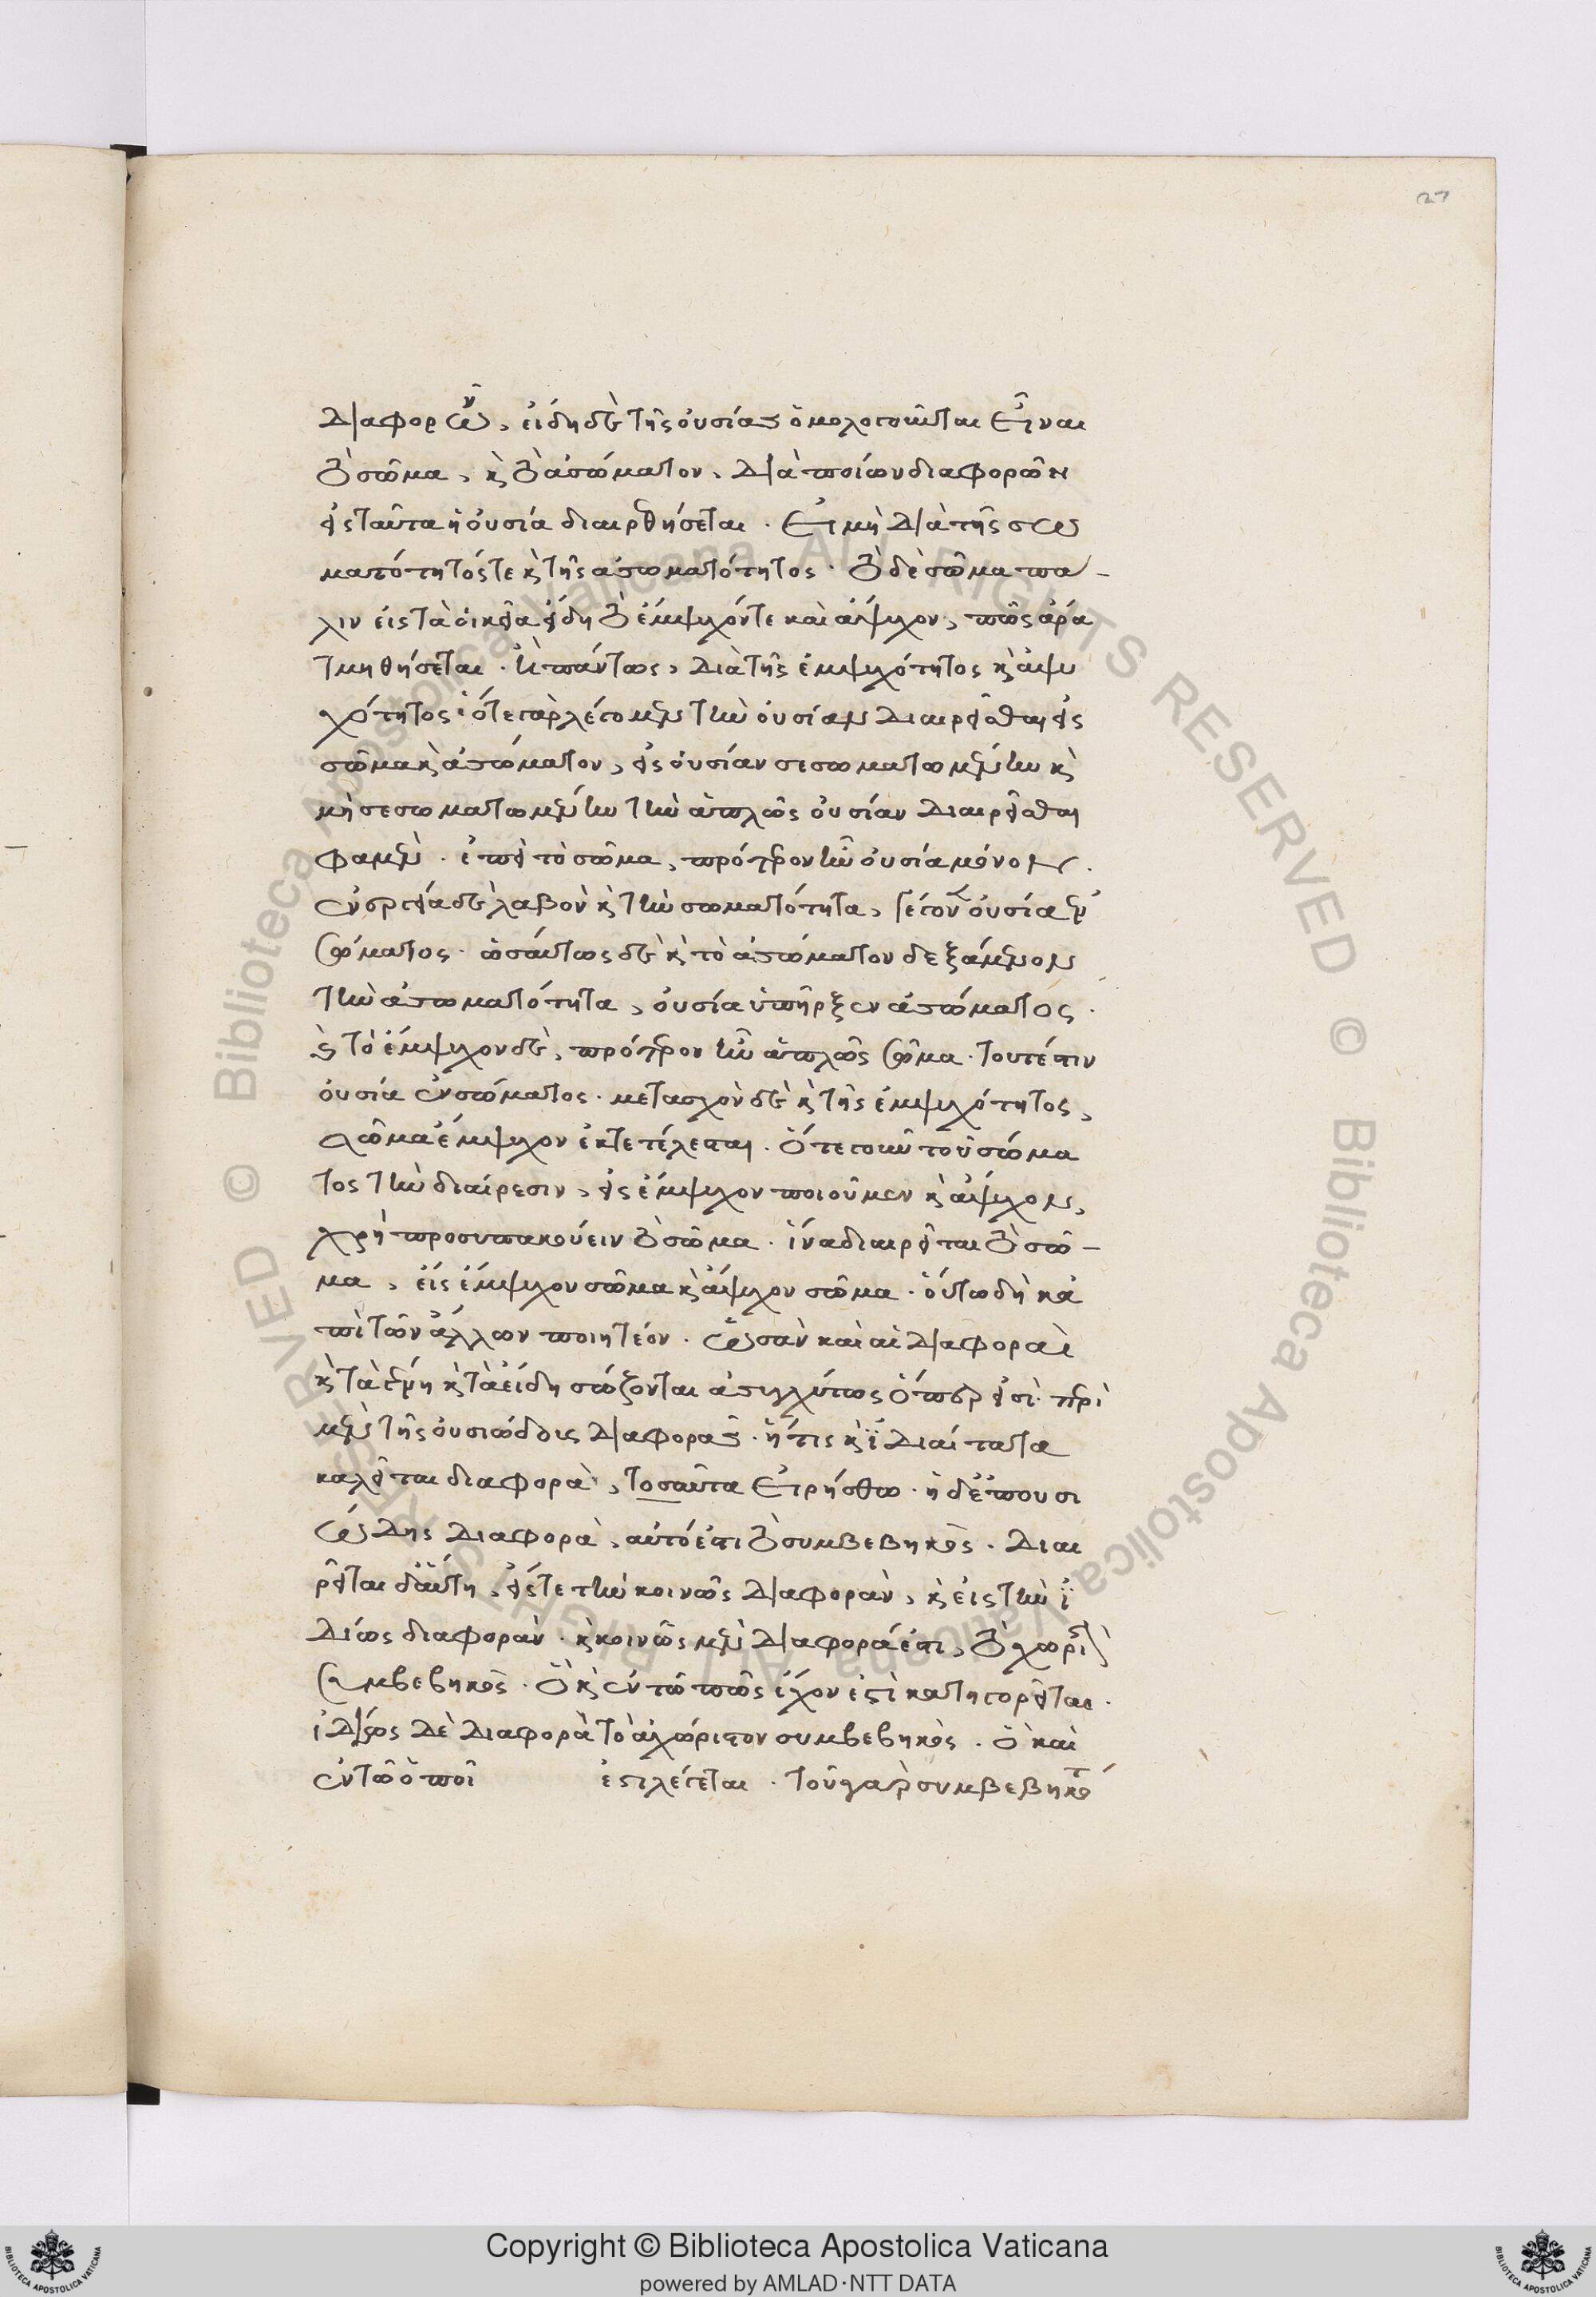 27
διαφορῶν, εἴδη δὲ τῆς οὐσίας ὁμολογοῦνται εἶναι
τὸ σῶμα, κ τὸ ἀσώματον, διὰ ποίων διαφορῶν
εἰς ταῦτα ἡ οὐσία διαιρθήσεται . εἰ μὴ διὰ τῆς σω
ματότητός τε κ τῆς ἀσωματότητος · τὸ δὲ σῶμα πα-
λιν εἰς τὰ οἰκεῖα εἴδη τὸ ἔμψυχόν τε καὶ ἄψυχον, πῶς ἄρα
τμηθήσεται . ἢ πάντως, διὰ τῆς ἐμψυχότητος κ ἀψυ
χότητος · ὅτε γὰρ λέγομεν τὴν οὐσίαν διαιρεῖσθαι εἰς
σῶμα κ ἀσώματον, εἰς οὐσίαν σεσωματωμένην κ
μὴ σεσωματωμένην τὴν ἁπλῶς οὐσίαν διαιρεῖσθαι
φαμὲν . ἐπεὶ τὸ σῶμα, πρότερον ἦν οὐσία μόνον .
λαβὸν κ τὴν σωματότητα, γέγονεν οὐσία
σώματος · ὡσαύτως δὲ κ τὸ ἀσώματον δεξάμενον
τὴν ἀσωματότητα, οὐσία ὑπῆρξεν ἀσώματος .
κ τὸ ἔμψυχον δὲ, πρότερον ἦν ἁπλῶς σῶμα . τουτέστιν
οὐσία ἐνσώματος · μετασχὸν δὲ κ τῆς ἐμψυχότητος,
σῶμα ἔμψυχον ἐκτετέλεσται . ὅτε γοῦν τοῦ σώμα
τος τὴν διαίρεσιν, εἰς ἔμψυχον ποιοῦμεν κ ἄψυχον,
χρὴ προσυπακούειν τὸ σῶμα . ἵνα διαιρεῖται τὸ σῶ-
μα, εἰς ἔμψυχον σῶμα κ ἄψυχον σῶμα . οὕτω δὴ κἀ
πὶ τῶν ἄλλων ποιητέον . ὡς ἂν καὶ αἱ διαφοραὶ
κ τὰ γένη κ τὰ εἴδη σώζονται ἀσυγχύτως ὅπερ εἰσὶ · περὶ
μὲν τῆς οὐσιώδους διαφορᾶς . ἥτις κ ἰδιαίτατα
καλεῖται διαφορὰ, τοσαῦτα εἰρήσθω . ἡ δὲ ἐπουσι
ώδης διαφορὰ, αὐτό ἐστι τὸ συμβεβηκὸς . διαι
ρεῖται δ' αὕτη, εἴς τε τὴν κοινῶς διαφορὰν, κ εἰς τὴν ἰ
δίως διαφορὰν . κ κοινῶς μὲν διαφορά ἐστι, τὸ χωριστὸν
συμβεβηκὸς . ὃ κ ἐν τῶ πῶς ἔχον ἐστὶ κατηγορεῖται .
ἰδίως δὲ διαφορὰ τὸ ἀχώριστον συμβεβηκὸς . ὃ καὶ
ἐν τῶ ὁποῖ ἐστι λέγεται . τοῦ γὰρ συμβεβηκότ
Copyright © Biblioteca Apostolica Vaticana
powered by AMLAD·NTT DATA